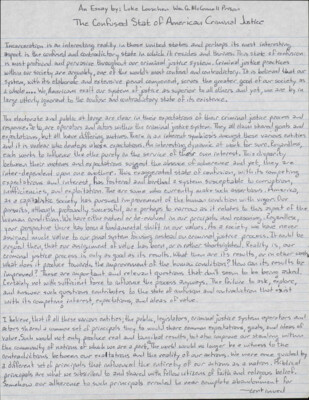 An Essay by: Luke
The Confused State of American Criminal Justice
Incarceration is an interesting reality in these united states and perhaps its most interesting
impact is the confused and contradictory state in which it resides and thrives. This state of confusion
is most profound and pervasive throughout our criminal justice system. Criminal justice practices
within our society are arguably, one of the world's most confused and contradictory. It is believed that our
system, with its elaborate and extensive penal component, serves the greater good of our society. As
a whole we as Americans exalt our system of justice as superior to all others and yet, we are by in
large utterly ignorant to the confused and contradictory state of its existence.
The electorate and public at large are clear in their expectations of their criminal justice process and
responsive to are operators and actors within the criminal justice system. They all share shared goals and
expectations, but all have different motives. There is an interest symbiosis amongst these various entities
and it is unclear who develops whose expectations. An interesting dynamic at work for sure. Regardless,
each works to influence the other purely in the service of their own interest. This disparity
between their motives and expectations suggest the absence of adherence and yet, they are
inter-dependent upon one another. This exaggerated state of confusion, with its competing
expectations and interest, has fostered and birthed a system susceptible to corruption,
ineffectiveness, and exploitation. There are some who currently make such assertions. America,
as a capitalistic society has pursued improvement of the human condition with vigor. Our
pursuits, although partially successful, are perhaps to narrow as it relates to this aspect of the
human condition. We have either failed or de-valued in our principals and reasoning. Regardless,
your perspective there has been a fundamental shift in our values. As a society we have never
derived much value to our system having evolved as criminal justice process. It could be
argued then, that our employment of value has been, or is rather shortsighted. Reality is, our
criminal justice process is only as good as its results. What then are its results, or in other words
what does it produce towards the improvement of the human condition? How can its results be
improved? These are important and relevant questions that don't seem to be being asked.
Certainly not with sufficient force to influence the powers anyways. The failure to ask, explore,
and answer such questions contributes to the state of confusion and contradiction that exist
with its competing interest, expectations, and ideas of value.
I believe, that if all these various entities; the public, legislators, criminal justice system operators and
actors shared a common set of principals they to would share common expectations, goals, and ideas of
value. Such would not only produce real and beneficial results, but also improve our standing within
the community of nations of which we are a part. The world would no longer be a witness to the
contradictions between our exaltations and the reality of our actions. We were once guided by
a different set of principals that influenced the entirety of our actions as a nation. Biblical
principals are what we subscribed to and shared with fellow citizens of faith and religious beliefs.
Somehow our adherence to such principals eroded to near complete abandonment for
continued